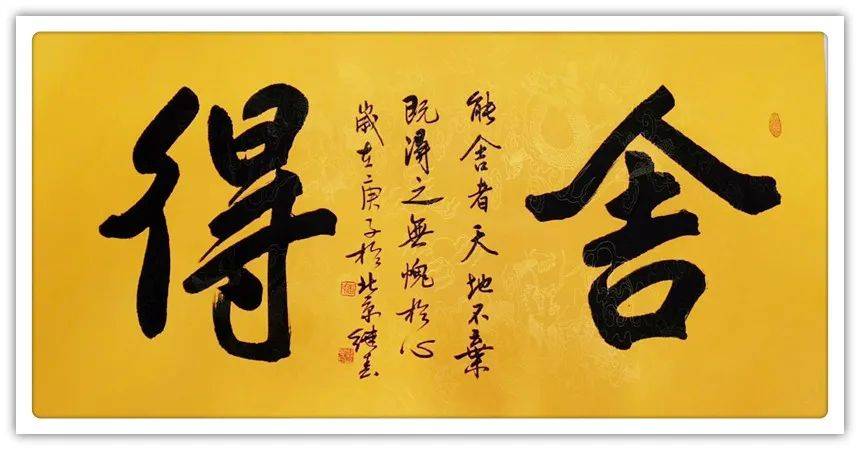 舍
能舍者天地不棄
既得之無愧於心
歲在庚子於北京继春
得